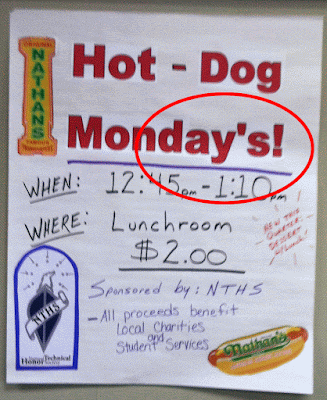 Hot - Dog
Monday's!
WHEN: 12:45pm - 1:10pm
WHERE: Lunchroom
$2.00
Sponsored by: NTHS
- All proceeds benefit
Local Charities
and
Student Services
NATHANS
FAMOUS
NTHS
National Technical
Honor Society
Nathan's